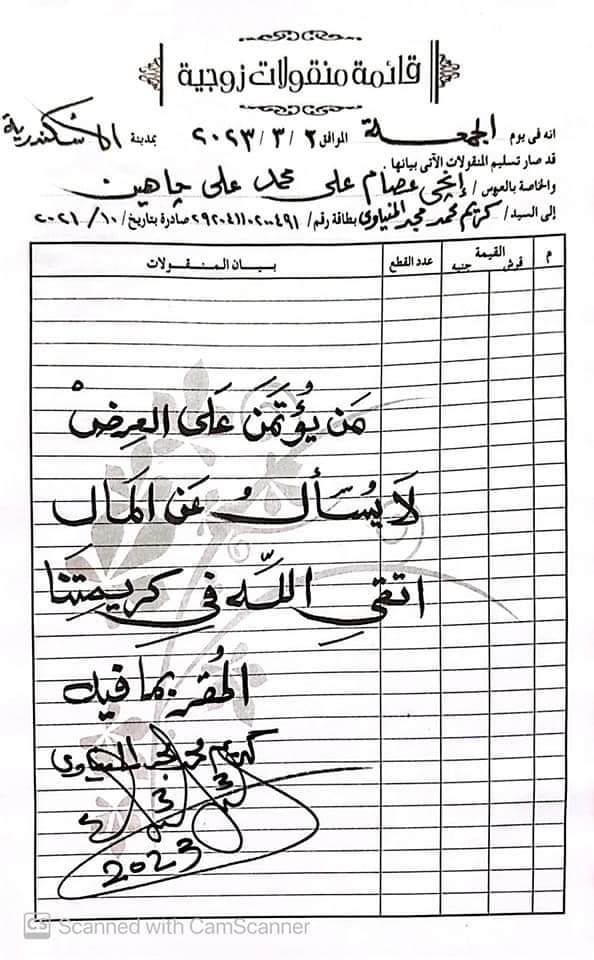 قائمة منقولات زوجية
انه فى يوم الجمعة الموافق ٢٠٢٣/٣/٣ بمدينة الأسكندرية
قد صار تسليم المنقولات الآتى بيانها .
والخاصة بالعروس / إنجى عصام على محمد على جاهين
إلى السيد / كريم محمد مجد المنياوى بطاقة رقم / ٢٩٢٠٤١١٠٢٠٠٤٩١ صادرة بتاريخ / ٢٠٢١/١٠
م القيمة عدد القطع بيان المنقولات
قرش جنيه
مَن يُؤتَمَنَ عَلَى العِرضْ
لَا يُسَألُ عَن المَال
اتقىِ اللّه فىِ كريمِتَنا
المُقر بما فيه
كريم محمد مجد المنياوى
2023
CS Scanned with CamScanner